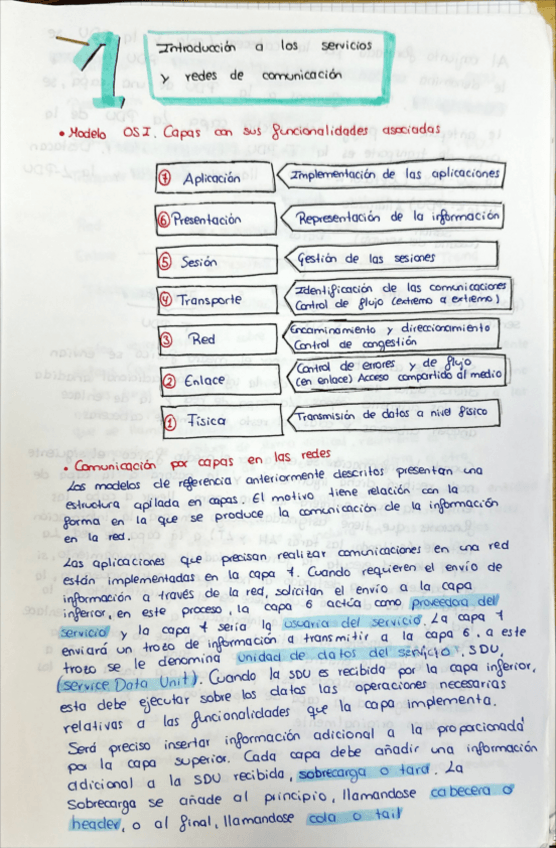 1.
Introducción a los servicios
y redes de comunicación
• Modelo OSI. Capas con sus funcionalidades asociadas
⑦ Aplicación Implementación de las aplicaciones
⑥ Presentación Representación de la información
⑤ Sesión Gestión de las sesiones
④ Transporte Identificación de las comunicaciones
Control de flujo (extremo a extremo)
③ Red Encaminamiento y direccionamiento
Control de congestión
② Enlace Control de errores y de flujo
(en enlace) Acceso compartido al medio
① Física Transmisión de datos a nivel físico
• Comunicación por capas en las redes
Los modelos de referencia anteriormente descritos presentan una
estructura apilada en capas. El motivo tiene relación con la
forma en la que se produce la comunicación de la información
en la red.
Las aplicaciones que precisan realizar comunicaciones en una red
están implementadas en la capa 7. Cuando requieren el envío de
información a través de la red, solicitan el envío a la capa
inferior, en este proceso, la capa 6 actúa como proveedora del
servicio y la capa 7 sería la usuaria del servicio. La capa 7
enviará un trozo de información a transmitir a la capa 6, a este
trozo se le denomina unidad de datos del servicio, SDU,
(service Data Unit). Cuando la SDU es recibida por la capa inferior,
esta debe ejecutar sobre los datos las operaciones necesarias
relativas a las funcionalidades que la capa implementa.
Será preciso insertar información adicional a la proporcionada
por la capa superior. Cada capa debe añadir una información
adicional a la SDU recibida, sobrecarga o tara. La
Sobrecarga se añade al principio, llamandose cabecera o
header, o al final, llamandose cola o tail